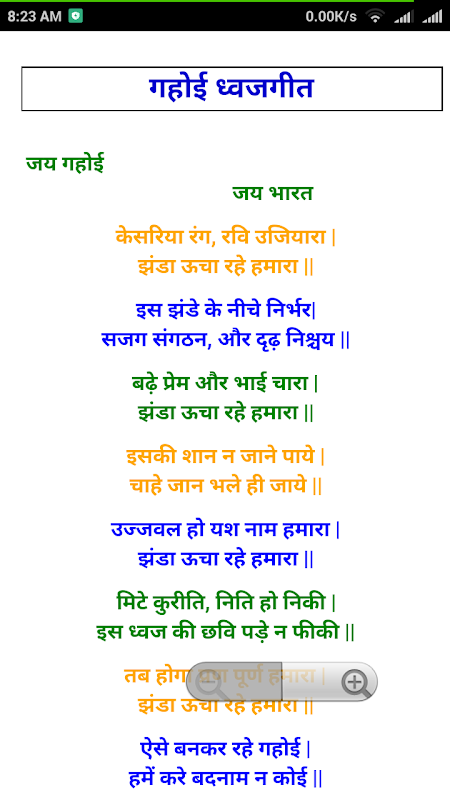 8:23 AM
0.00K/s
गहोई ध्वजगीत
जय गहोई
जय भारत
केसरिया रंग, रवि उजियारा |
झंडा ऊचा रहे हमारा ||
इस झंडे के नीचे निर्भर|
सजग संगठन, और दृढ़ निश्चय ||
बढ़े प्रेम और भाई चारा |
झंडा ऊचा रहे हमारा ||
इसकी शान न जाने पाये |
चाहे जान भले ही जाये ||
उज्जवल हो यश नाम हमारा |
झंडा ऊचा रहे हमारा ||
मिटे कुरीति, निति हो निकी |
इस ध्वज की छवि पड़े न फीकी ||
तब होगा पूर्ण हमारा |
झंडा ऊचा रहे हमारा ||
ऐसे बनकर रहे गहोई |
हमें करे बदनाम न कोई ||